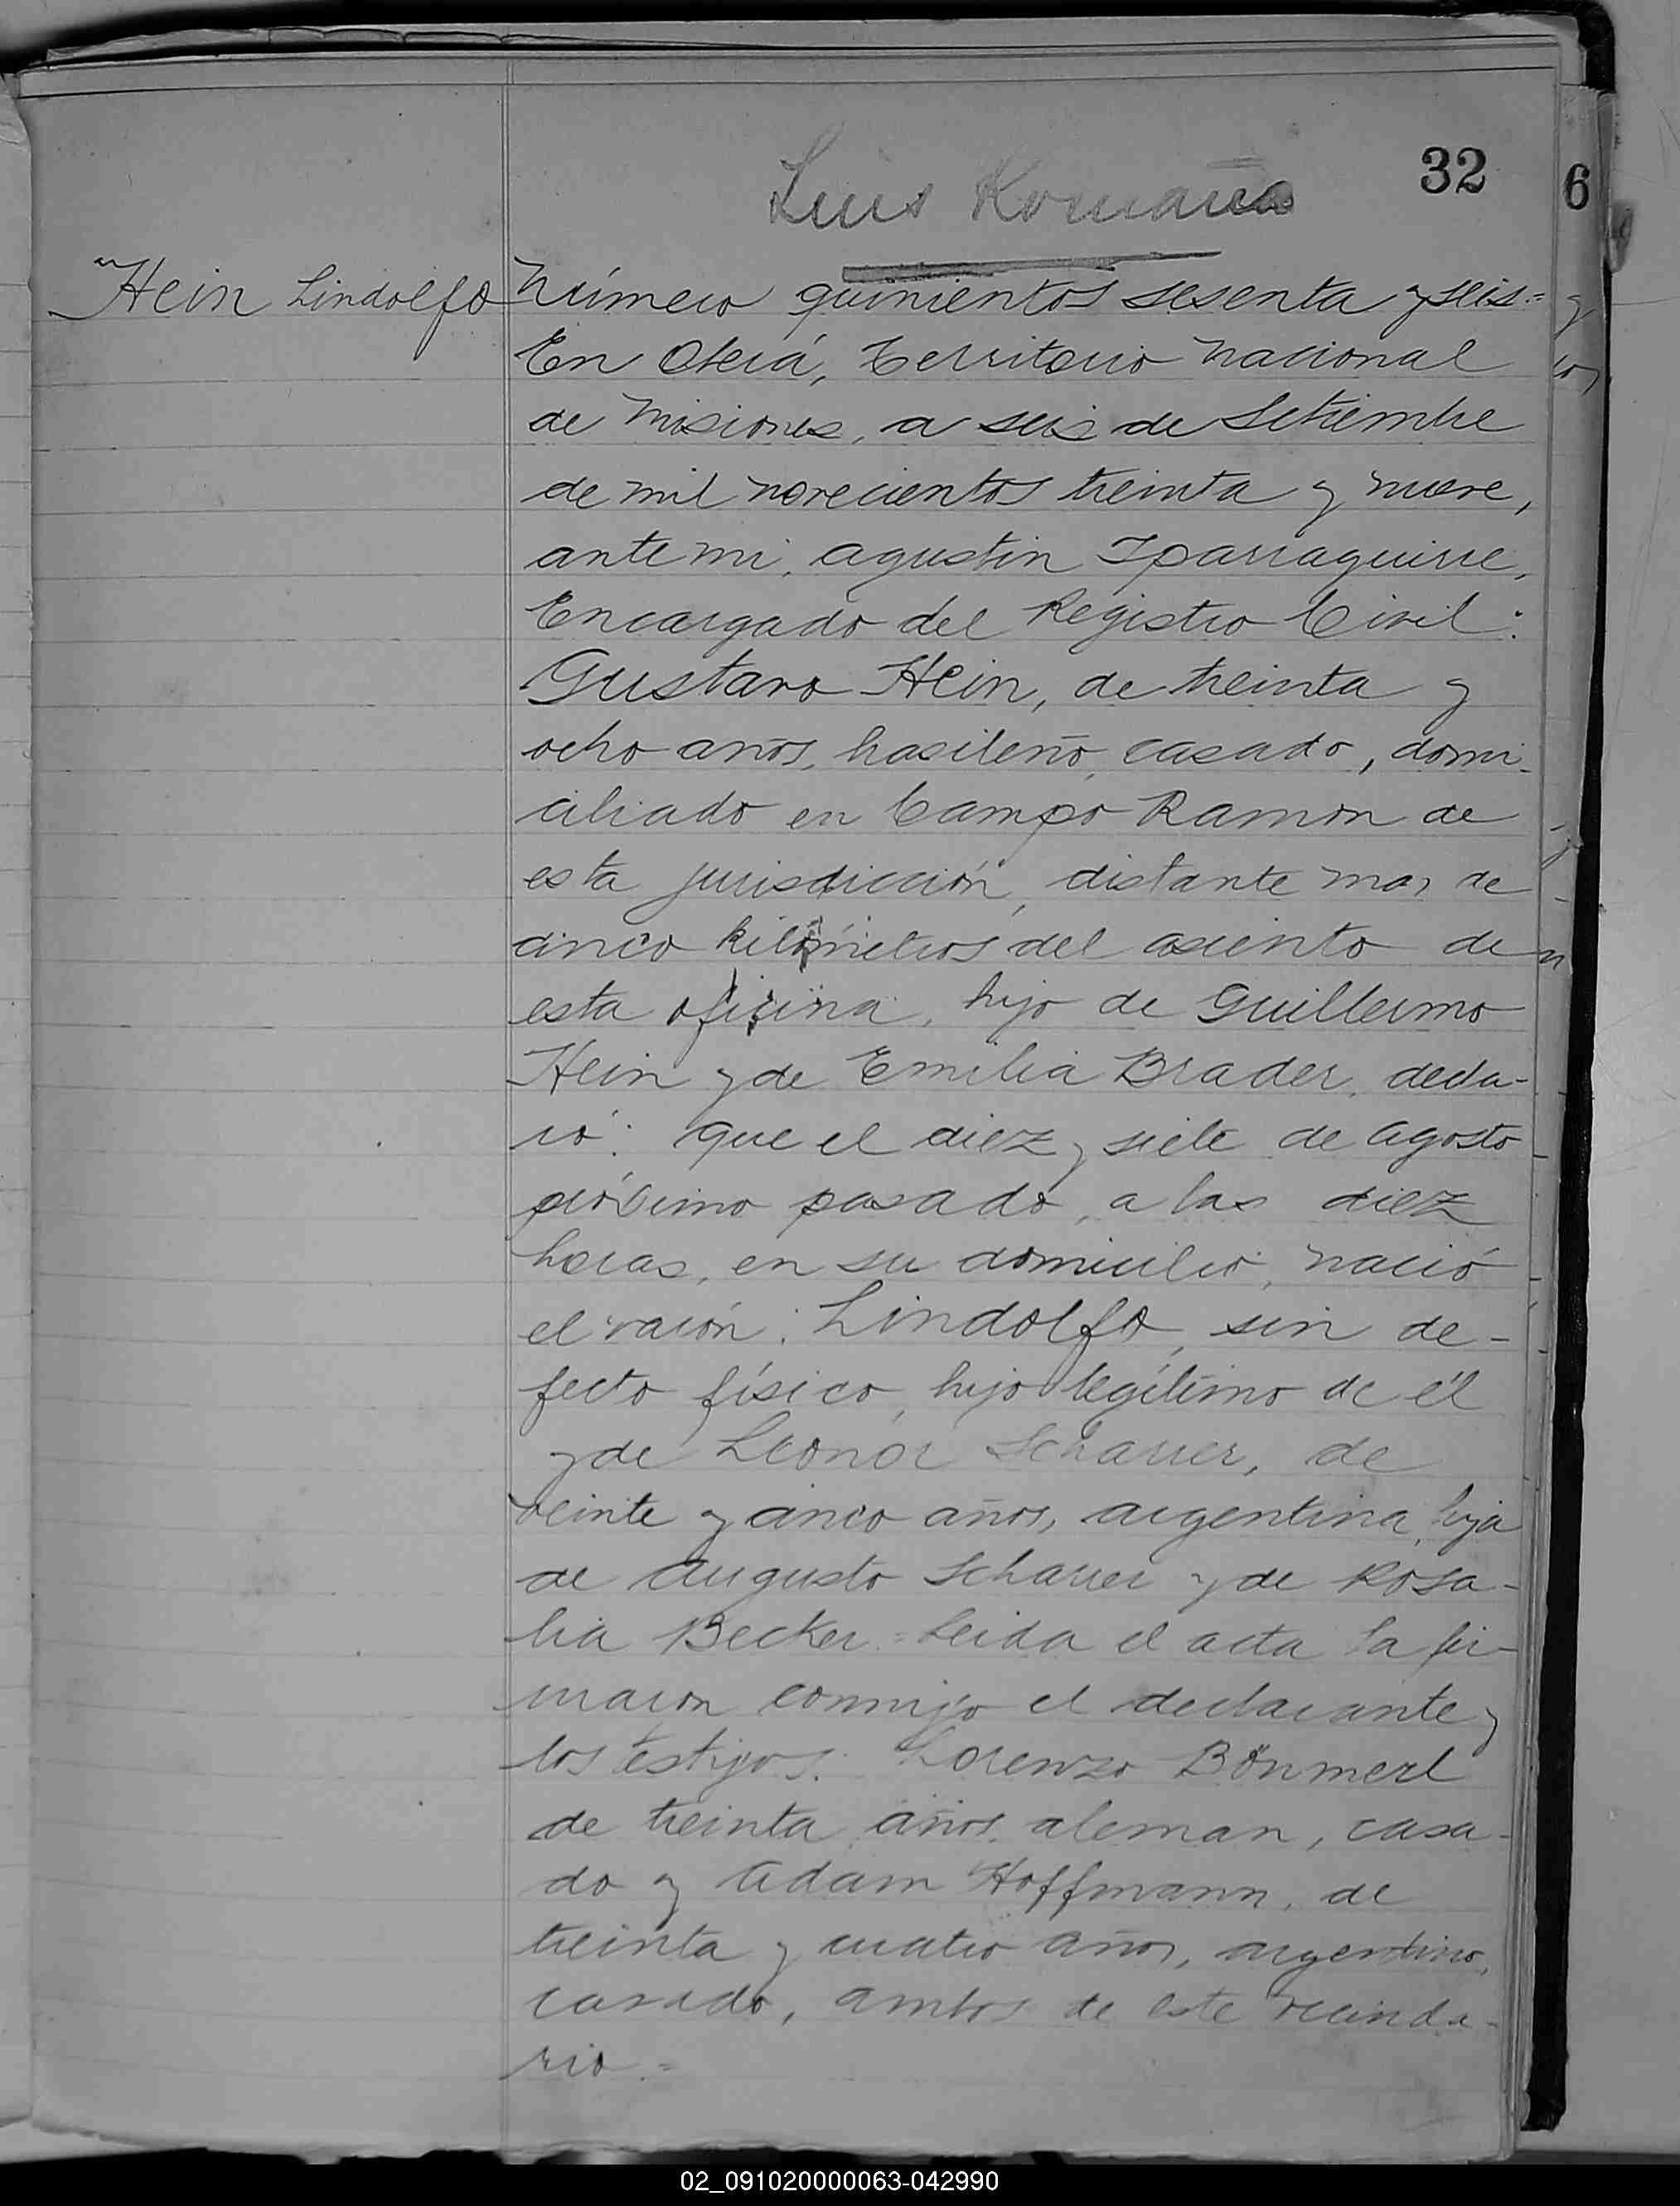 32
6
Luis Romaña
Hein Lindolfo
Número quinientos sesenta y seis.=
En Oberá, Territorio Nacional
de Misiones, a seis de Setiembre
de mil novecientos treinta y nueve,
ante mi, Agustin Iparraguirre,
Encargado del Registro Civil:
Gustavo Hein, de treinta y
ocho años, brasileño, casado, domi-
ciliado en Campo Ramon de
esta jurisdicción, distante mas de
cinco kilómetros del asiento de
esta oficina, hijo de Guillermo
Hein y de Emilia Brader, decla-
ró: que el diez y siete de Agosto
próximo pasado, a las diez
horas, en su domicilio, nació
el varón: Lindolfo, sin de-
fecto físico, hijo legítimo de él
y de Leonor Scharrer, de
veinte y cinco años, argentina, hija
de Augusto Scharrer y de Rosa-
lia Becker.= Leida el acta la fir-
maron conmigo el declarante y
los testigos: Lorenzo
de treinta años, aleman, casa-
do y Adam Hoffmann, de
treinta y cuatro años, argentino,
casado, ambos de este vecinda-
rio.=
02_091020000063-042990